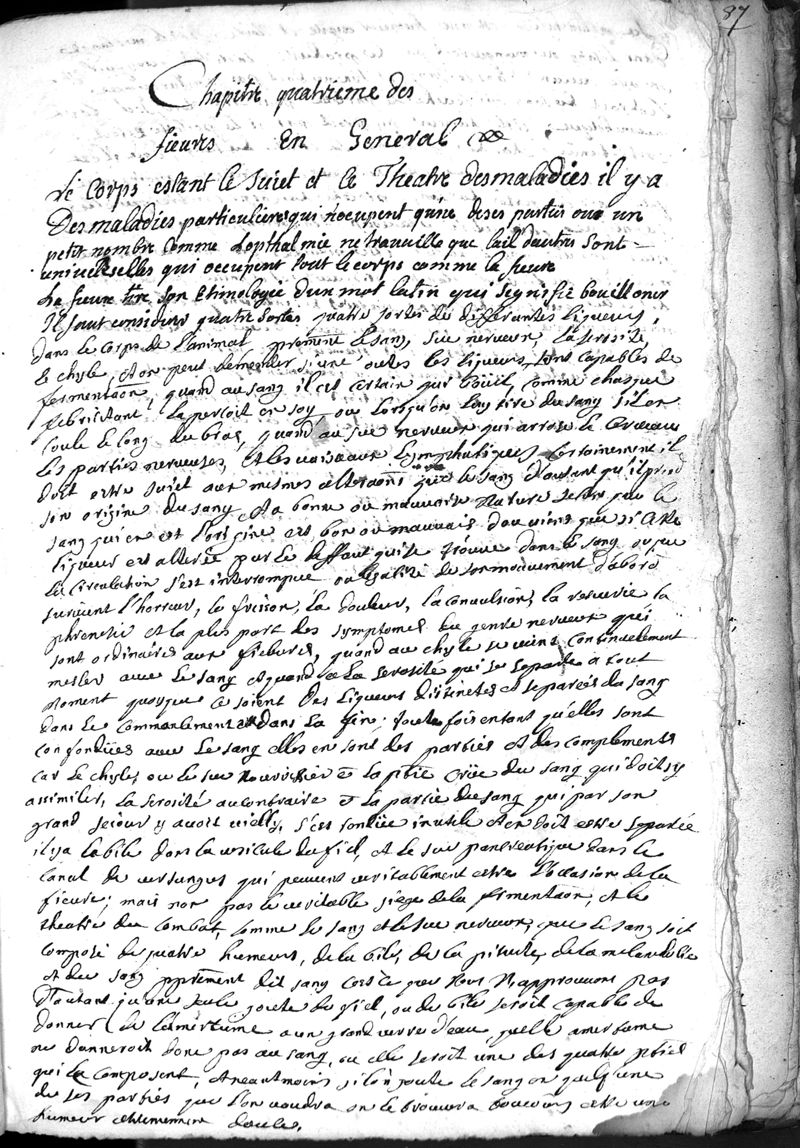 87
Chapitre quatrieme des
fieures En General
Le Corps estant le Suiet et le Theatre des maladies il y a
Des maladies particulieres qui nocupent qu'une de ses parties ou a un
petit nombre Comme Lopthalmie ne travaille que l'œil d'autres Sont
universelles qui occupent tout le corps comme la fieure
La fieure tire Son Ethimologie d'un mot latin qui Signifie bouillonir
Il faut considerer quatre Sortes de differantes liqueurs,
dans le Corps de l'animal, le sang, suc nerveux, la serosité
le chyle, et on peut demander si une toutes les liqueurs sont capables de
fermentaon, quand au sang il est certain qui boüil, comme chasque
febricitant la percoit en soy ou lorsqu'on tire du sang s'il en
coule le long du bras, quand au suc nerveux qui arrose le Cerveau
les parties nerveuses, et les vaisseaux lymphatiques, certainement il
doit estre suiet aux mesmes alteraons que le sang d'autant qu'il prend
son origine du sang, et a bonne ou mauvaise Nature selon que le
sang qui en est l'origine est bon ou mauvais d'ou vient que si cette
liqueur est alterée par le deffaut qui se trouve dans le sang ou que
la circulation s'est interrompue ou de son mouvement d'abord
survient l'horreur, le frisson, la douleur, la convulsion, la resverie la
phrenesie et la plus part des symptomes du genre nerveux qui
sont ordinaires aux fiebures, quand au chyle se vient continuellement
mesler avec le sang et quand a la serosité qui se separe a tout
moment quoyque ce soient des liqueurs distinctes et separées du sang
dans le Commancement et dans la fin; toute fois entant qu'elles sont
confondües avec le sang elles en sont des parties et des complements
car le chyle, ou le suc nourricier est la ptie crüe du sang qui doit s'y
assimiler, la serosité au contraire est la partie du sang qui par son
grand seiour y ayant vielly, s'est rendüe inutile et en doit estre separée
il y a la bile dans la vesicule du fiel, et le suc pancreatique dans le
Canal de versungus qui peuvent veritablement estre l'occasion de la
fieure; mais non pas le veritable siege de la fermentaon, et le
theatre du combat, comme le sang et le suc nerveux; que le sang soit
composé de quatre humeurs, de la bile, de la pituite, de la melancholie
et du sang pprement dit sang c'est ce que Nous N'approuvons pas
d'autant qu'une seule goute de fiel, ou de bile seroit capable de
donner de l'amertume a un grand verre d'eau, quelle amertume
ne donneroit donc pas au sang, ou elle seroit une des quatre pties
qui le composent, et neantmoins si l'on goute le sang en quelqu'une
de ses parties que l'on voudra on le trouvera tousiours estre une
humeur extremement douce,